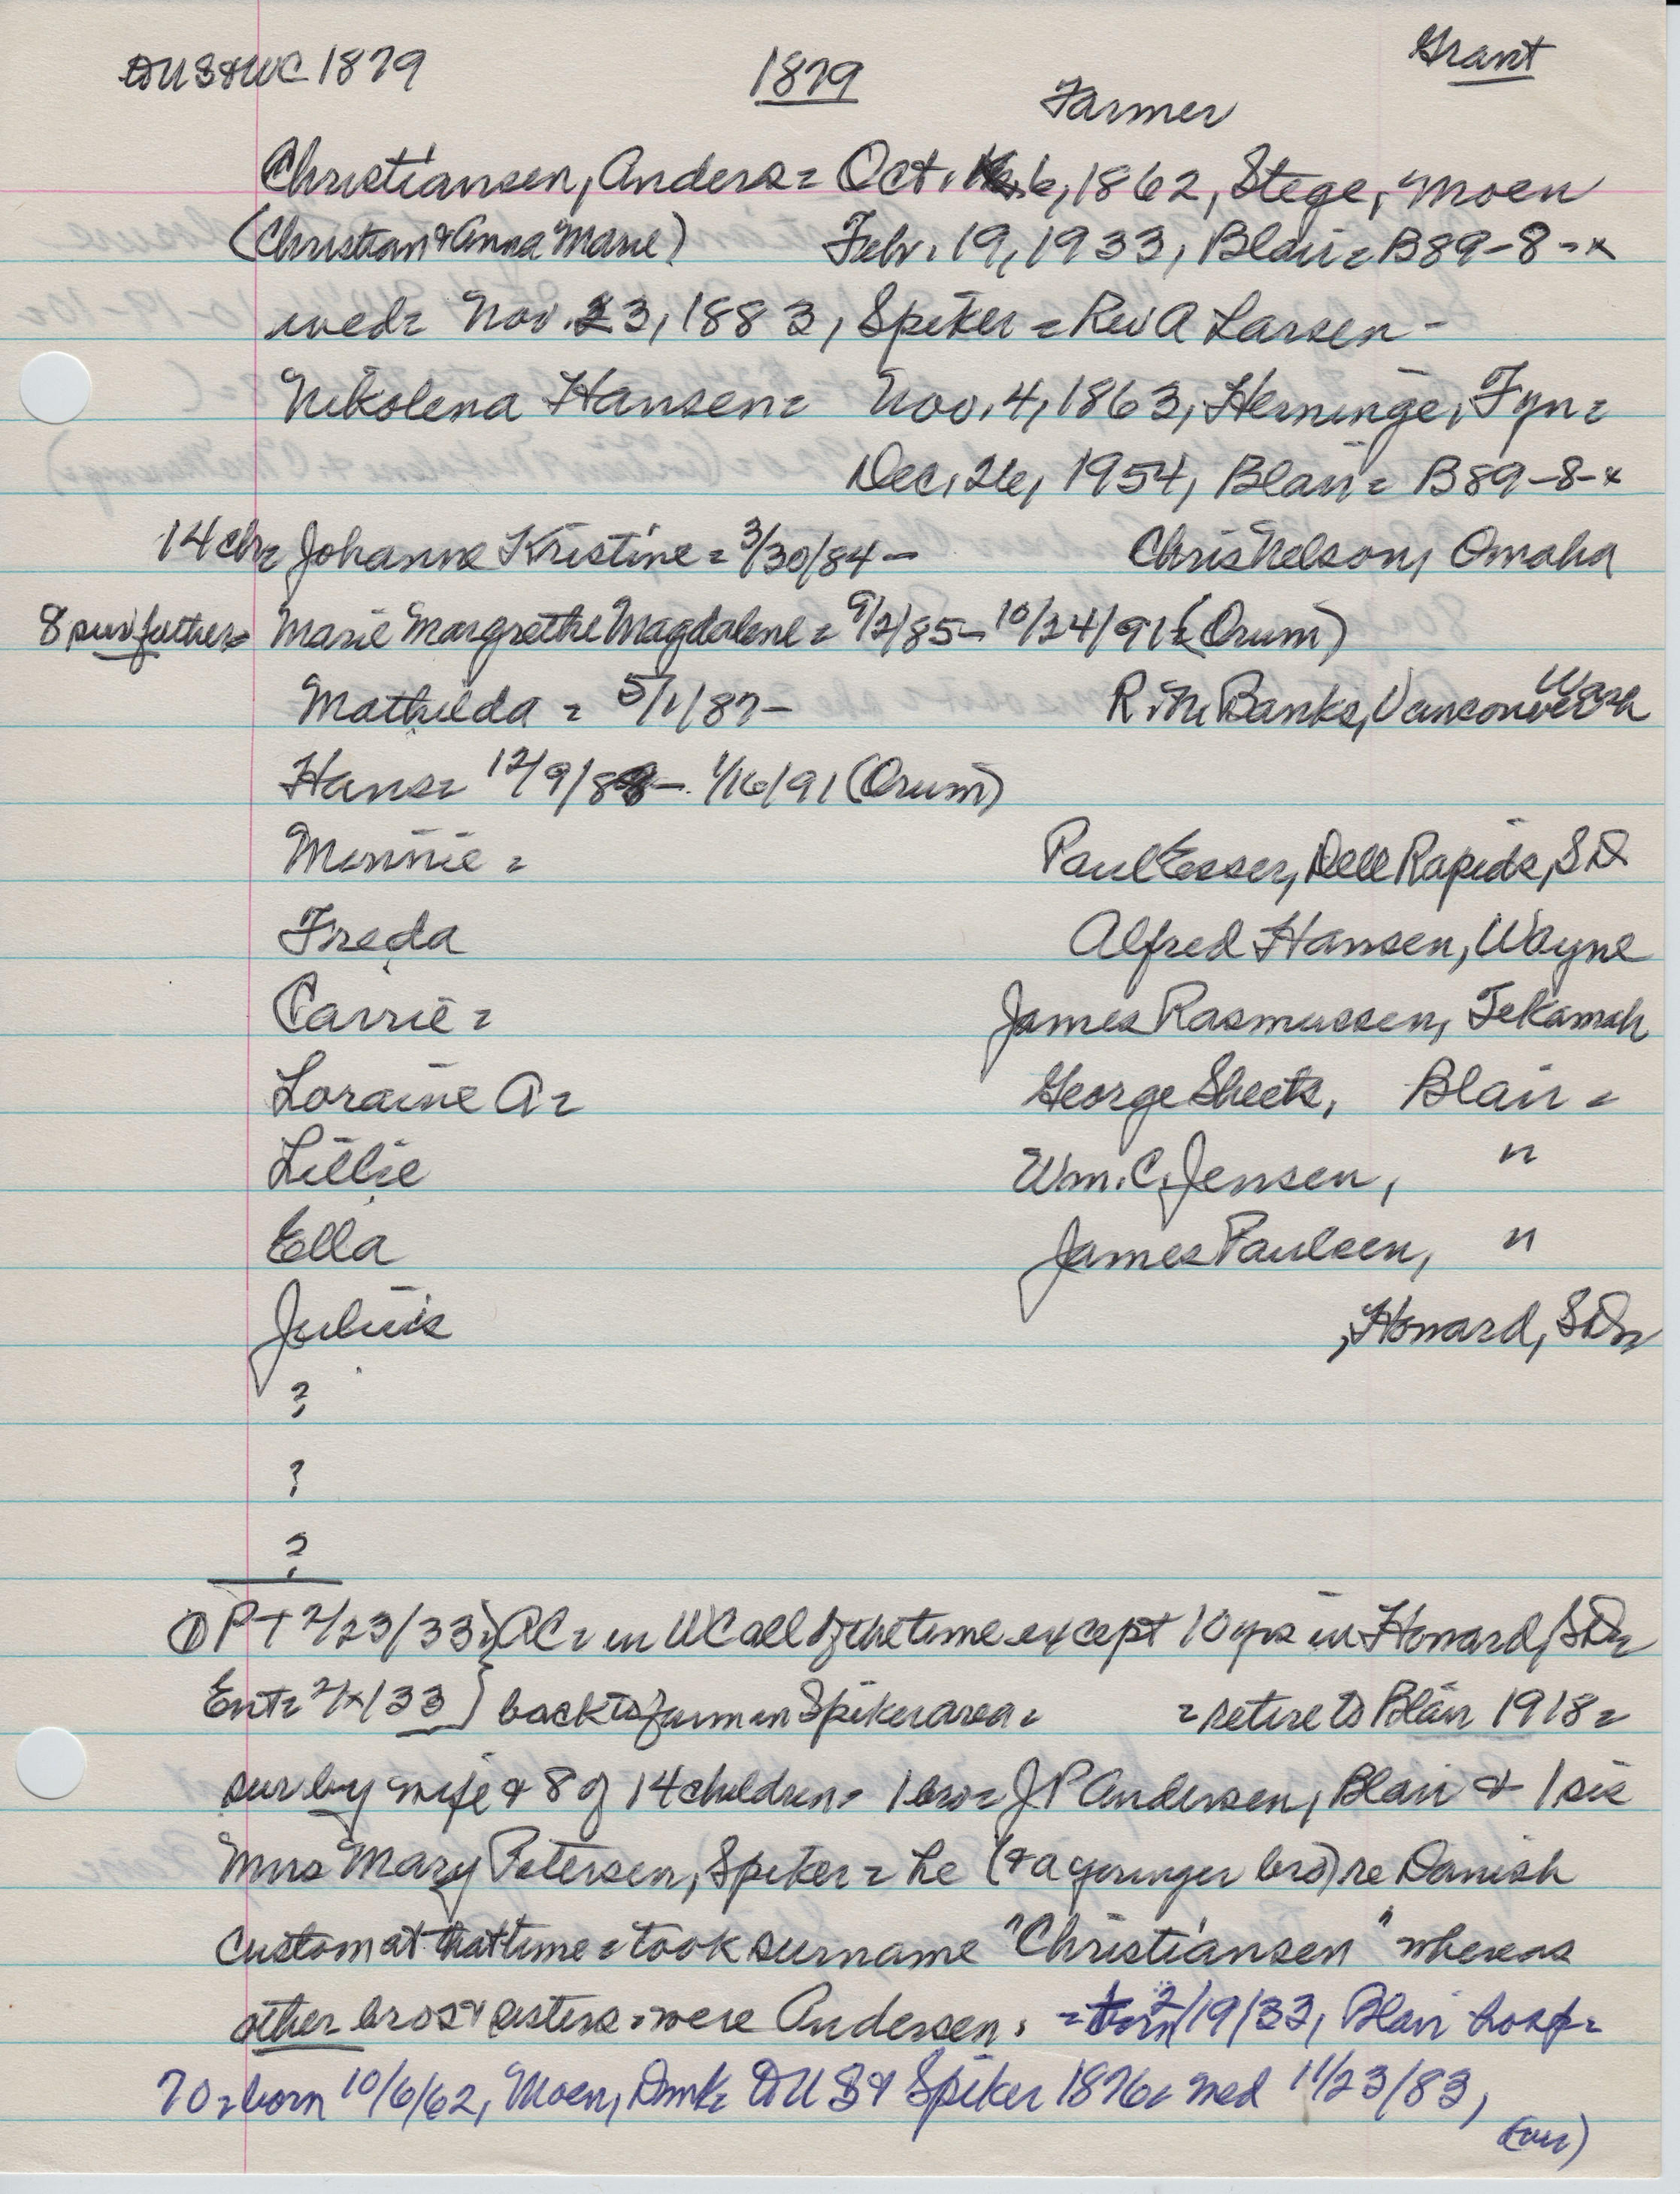 Grant
AUS&WC 1879 1879
Farmer
Christiansen, Anders = Oct. 6, 1862, Stege, Moen
(Christian & Anna Marie) Febr. 19, 1933, Blair = B89-8-x
wed = Nov. 23, 1883, Spiker = Rev A Larsen -
Nikolena Hansen = Nov. 4, 1863, Herninge, Fyn =
Dec. 26, 1954, Blair = B89-8-x
14 ch = Johanne Kristine = 3/30/84 - Chris Nelson, Omaha
8 surv father = Marie Margrethe Magdalene = 9/2/85 - 10/24/91 = (Orum)
Mathilda = 5/1/87 - Banks, Vancouver Wash
Hans = 12/9/88 - 1/16/91 (Orum)
Minnie = Paul Esser, Dell Rapids, SD
Freda Alfred Hansen, Wayne
Carrie = James Rasmussen, Tekamah
Loraine A = George Sheets, Blair =
Lillie Wm. C. Jensen, "
Ella James Paulsen, "
Julius , Howard, SD =
?
?
?
① PT 2/23/33 } AC = in WC all of the time except 10 yrs in Howard, SD =
Ent = 2/x/33 } back to farm in Spiker area = = retire to Blair 1918 =
sur by wife & 8 of 14 children = 1 bro = J P Andersen, Blair & 1 sis
Mrs Mary Petersen, Spiker = he (& a younger bro) re Danish
custom at that time = took surname "Christiansen" whereas
other bros & sisters = were Andersen. = 2/19/33, Blair hosp =
70 = born 10/6/62, Moen, Dmk = AUS & Spiker 1876 = wed 11/23/83,
(ovr)